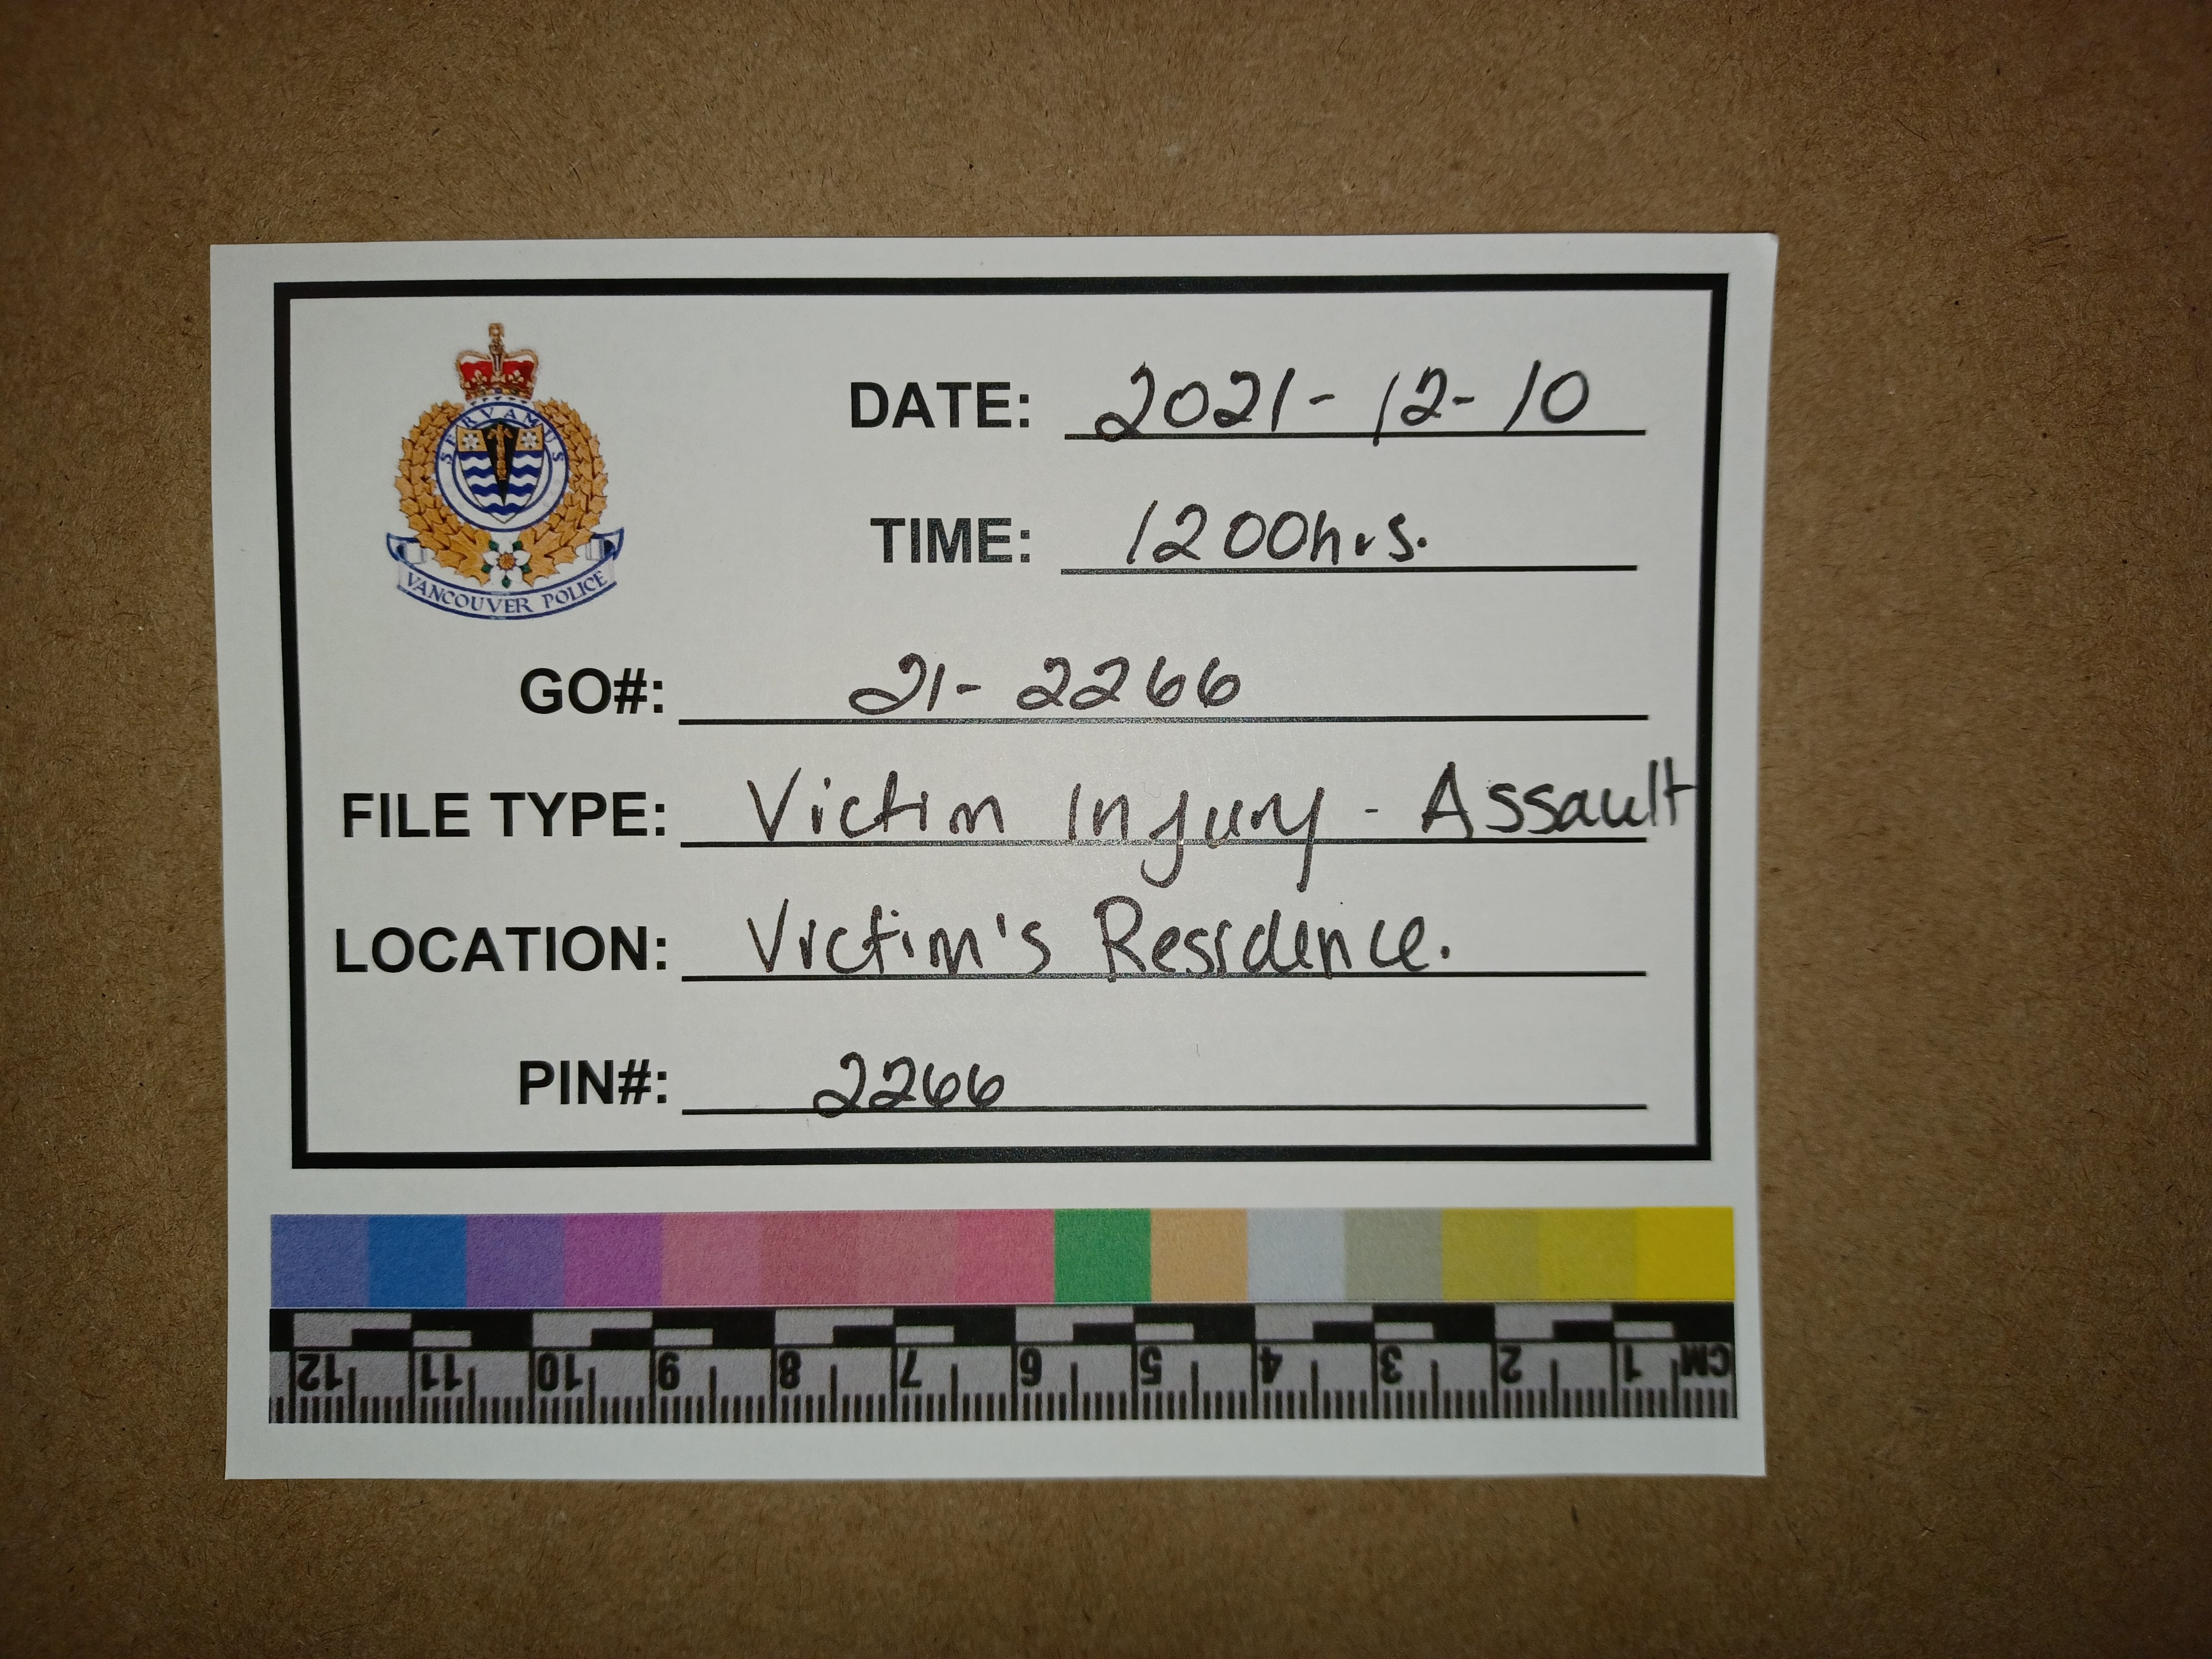 SERVAMUS
VANCOUVER POLICE
DATE: 2021-12-10
TIME: 1200hrs.
GO#: 21-2266
FILE TYPE: Victim Injury - Assault
LOCATION: Victim's Residence.
PIN#: 2266
12 11 10 9 8 7 6 5 4 3 2 1 CM